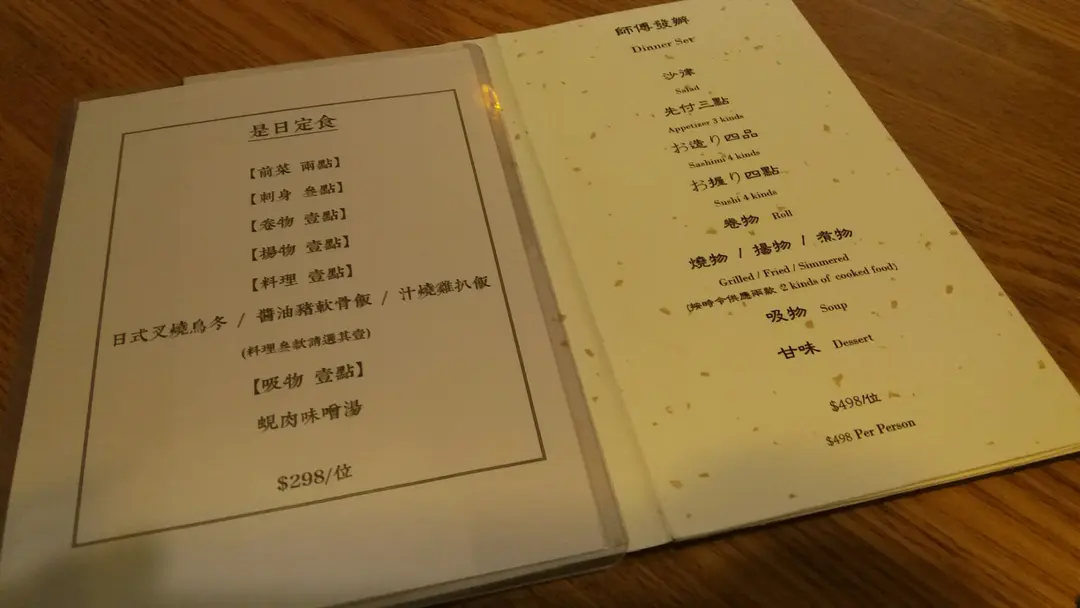 是日定食
【前菜 兩點】
【刺身 叁點】
【卷物 壹點】
【揚物 壹點】
【料理 壹點】
日式叉燒烏冬 / 醬油豬軟骨飯 / 汁燒雞扒飯
(料理叁款請選其壹)
【吸物 壹點】
蜆肉味噌湯
$298/位
師傅發辦
Dinner Set
沙律
Salad
先付三點
Appetizer 3 kinds
お造り四品
Sashimi 4 kinds
お握り四點
Sushi 4 kinds
卷物 Roll
燒物 / 揚物 / 煮物
Grilled / Fried / Simmered
(按時令供應兩款 2 kinds of cooked food)
吸物 Soup
甘味 Dessert
$498/位
$498 Per Person